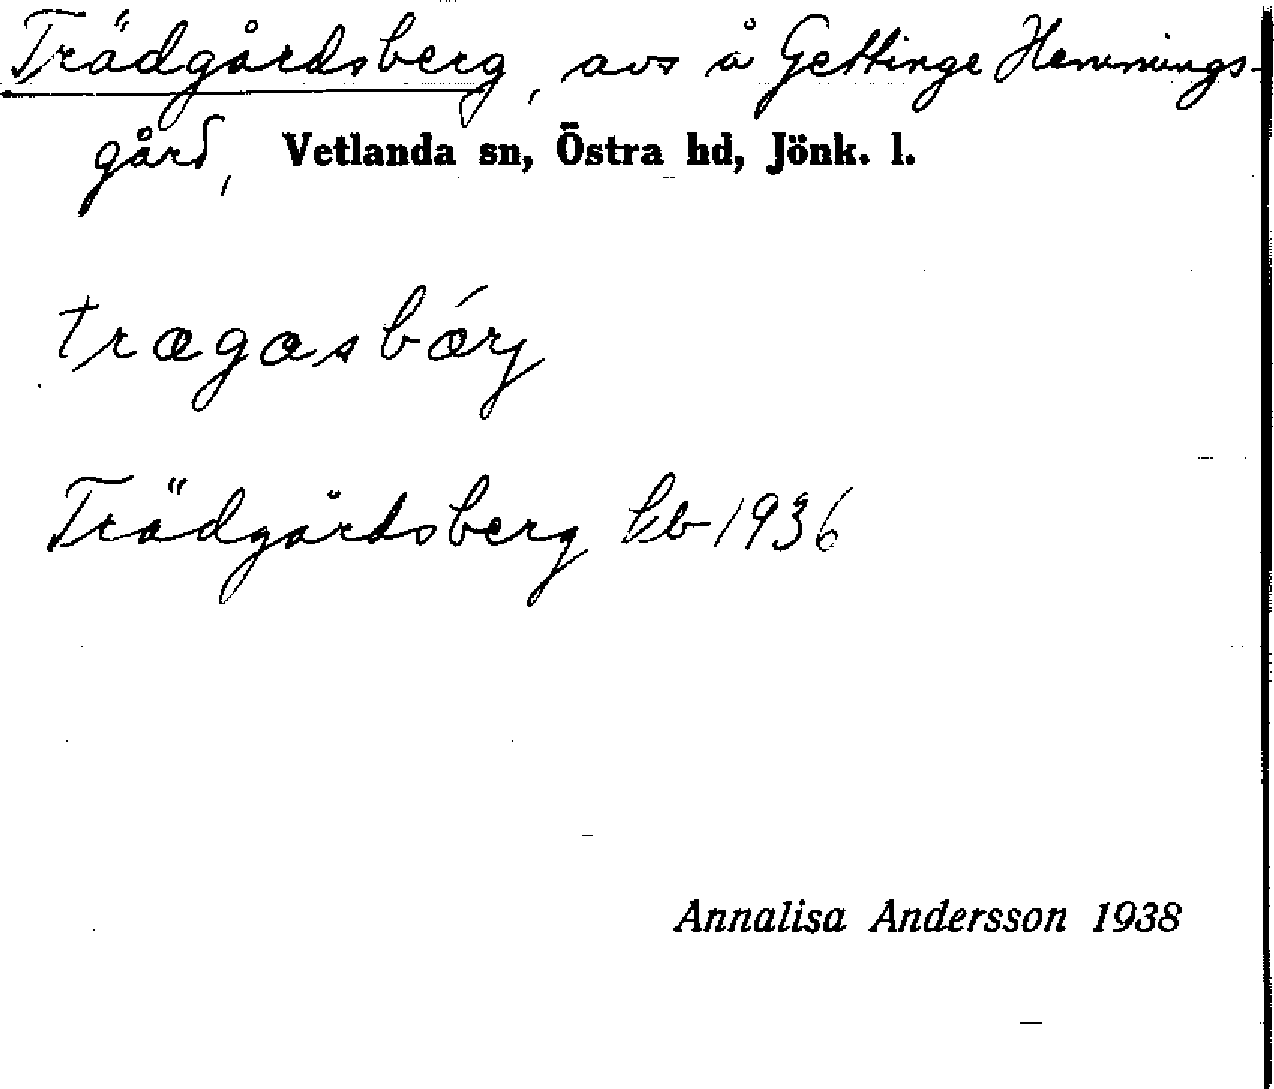 Trädgårdsberg, avs å Gettinge Hemmings-
gård, Vetlanda sn, Östra hd, Jönk. l.
trægasbærj
Trädgårdsberg kb 1936
Annalisa Andersson 1938